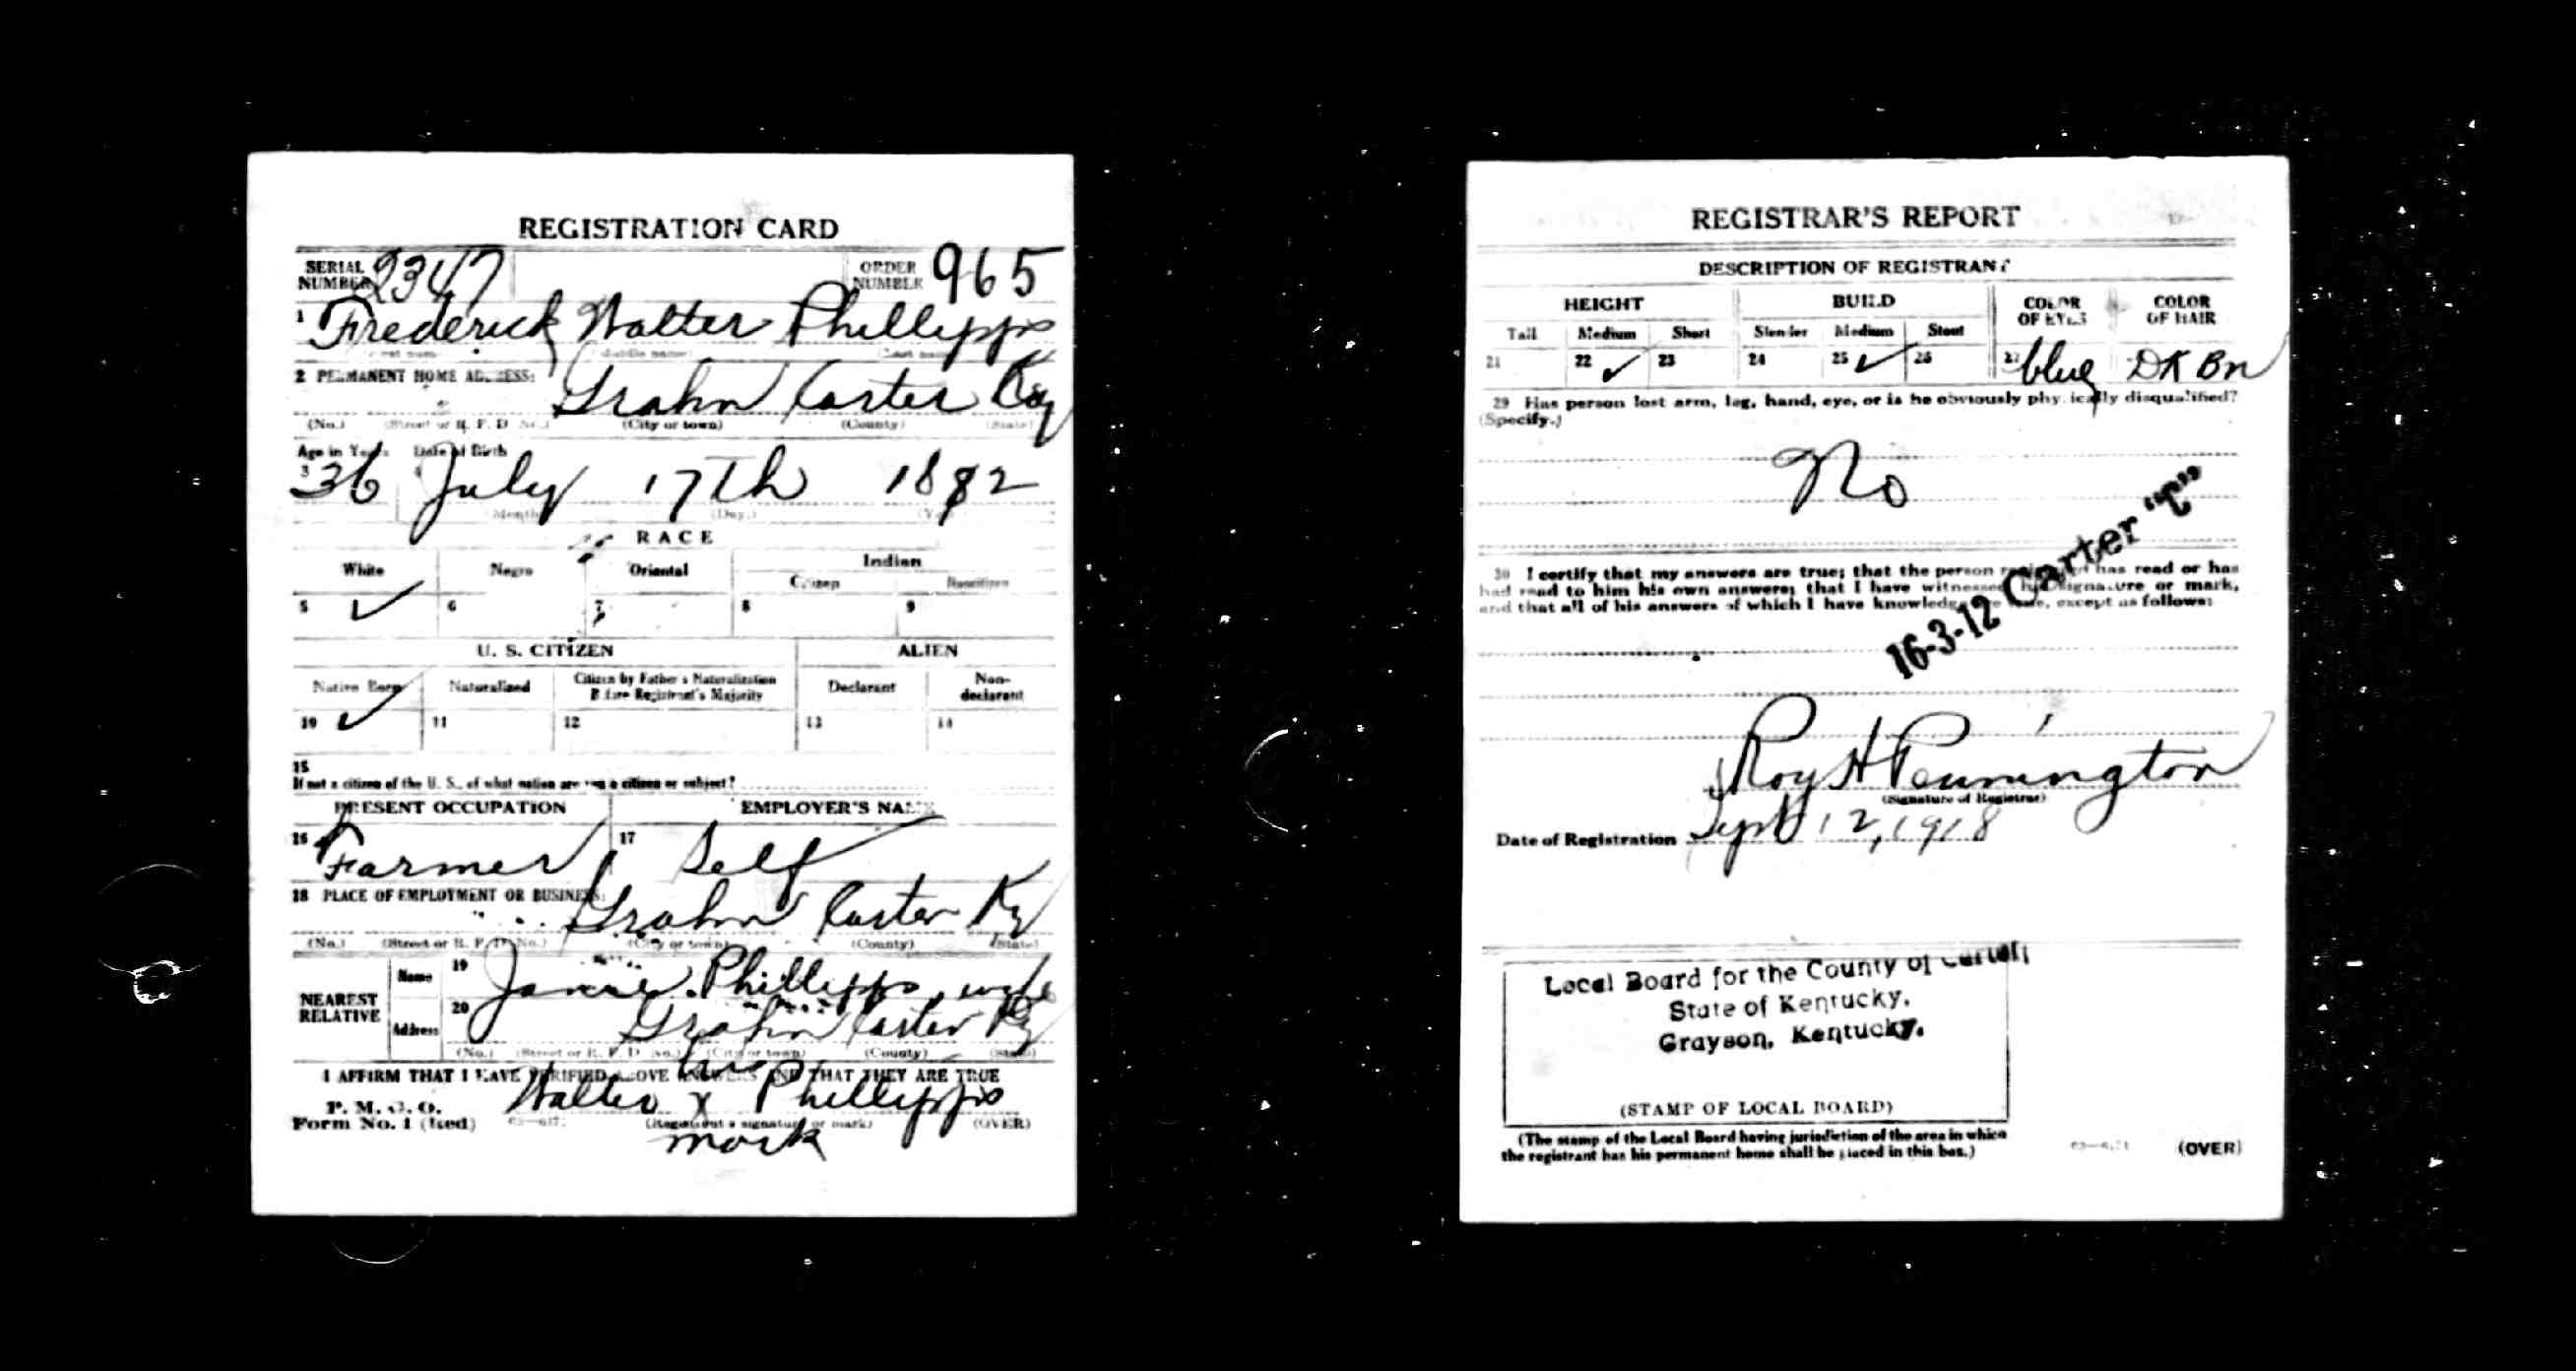 REGISTRATION CARD
SERIAL NUMBER 2347 ORDER NUMBER 965
1 Frederick Walter Phillipps
(Middle name) (Last name)
2 PERMANENT HOME ADDRESS: Grahn Carter Ky
(No.) (Street or R. F. D. No.) (City or town) (County) (State)
Age in Years Date of Birth
3 36 4 July 17Th 1882
(Month) (Day.) (Year)
RACE
White Negro Oriental Indian
Citizen Noncitizen
5 ✓ 6 7 8 9
U. S. CITIZEN ALIEN
Native Born Naturalized Citizen by Father's Naturalization Before Registrant's Majority Declarant Non-declarant
10 ✓ 11 12 13 14
15
If not a citizen of the U. S., of what nation are you a citizen or subject?
PRESENT OCCUPATION EMPLOYER'S NAME
16 Farmer 17 Self
18 PLACE OF EMPLOYMENT OR BUSINESS:
Grahn Carter Ky
(No.) (Street or R. F. D. No.) (City or town) (County) (State)
NEAREST RELATIVE Name 19 Phillipps, wife
Address 20 Grahn Carter Ky
(No.) (Street or R. F. D. No.) (City or town) (County) (State)
I AFFIRM THAT I HAVE VERIFIED ABOVE ANSWERS AND THAT THEY ARE TRUE
his
P. M. G. O. Walter x Phillipps
Form No. 1 (Red) (Registrant's signature or mark) (OVER)
mark
REGISTRAR'S REPORT
DESCRIPTION OF REGISTRANT
HEIGHT BUILD COLOR OF EYES COLOR OF HAIR
Tall Medium Short Slender Medium Stout
21 22 ✓ 23 24 25 ✓ 26 27 blue DK Bn
29 Has person lost arm, leg, hand, eye, or is he obviously physically disqualified?
(Specify.)
No
16-3-12 Carter "C"
30 I certify that my answers are true; that the person registered has read or has
had read to him his own answers; that I have witnessed his signature or mark,
and that all of his answers of which I have knowledge are true, except as follows:
Roy H Pennington
(Signature of Registrar)
Date of Registration Sept 12, 1918
Local Board for the County of Carter,
State of Kentucky,
Grayson, Kentucky.
(STAMP OF LOCAL BOARD)
(The stamp of the Local Board having jurisdiction of the area in which
the registrant has his permanent home shall be placed in this box.)
(OVER)